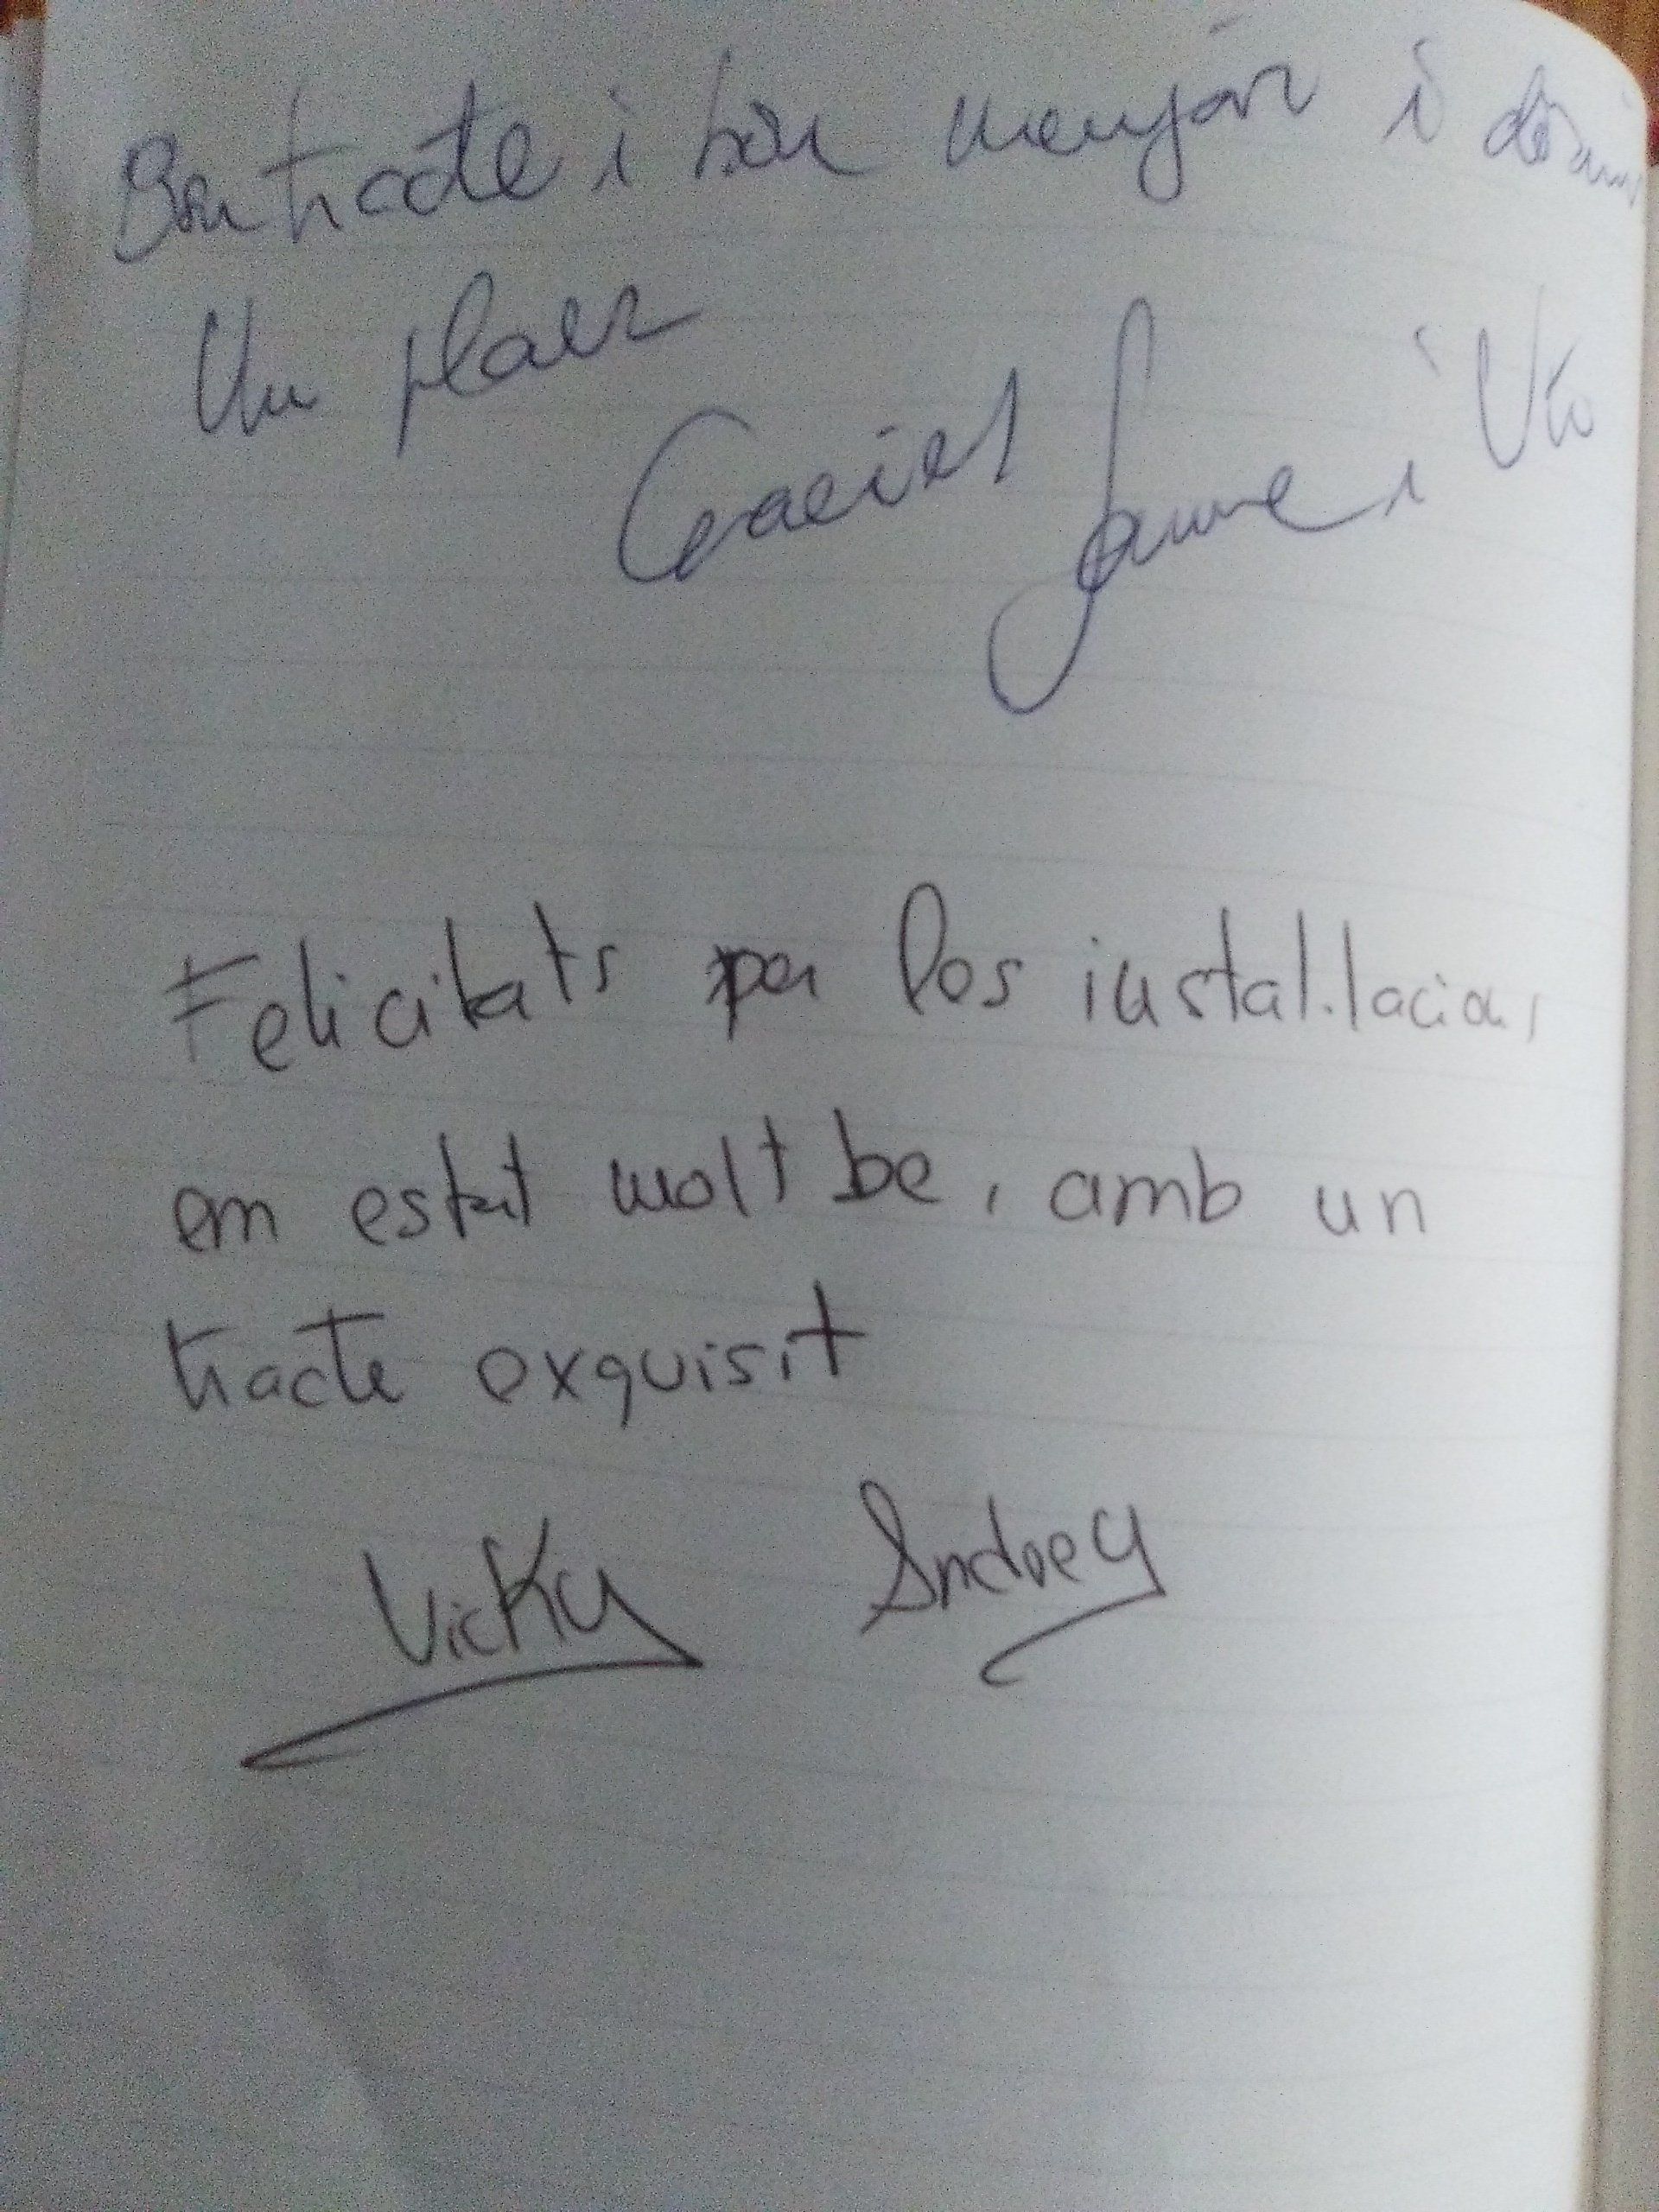 Bon tracte i bon menjar i dormir
Un plaer
Gracies Jaume i
Felicitats per les instal.lacions
em estat molt be, amb un
tracte exquisit
Vicky Andrey